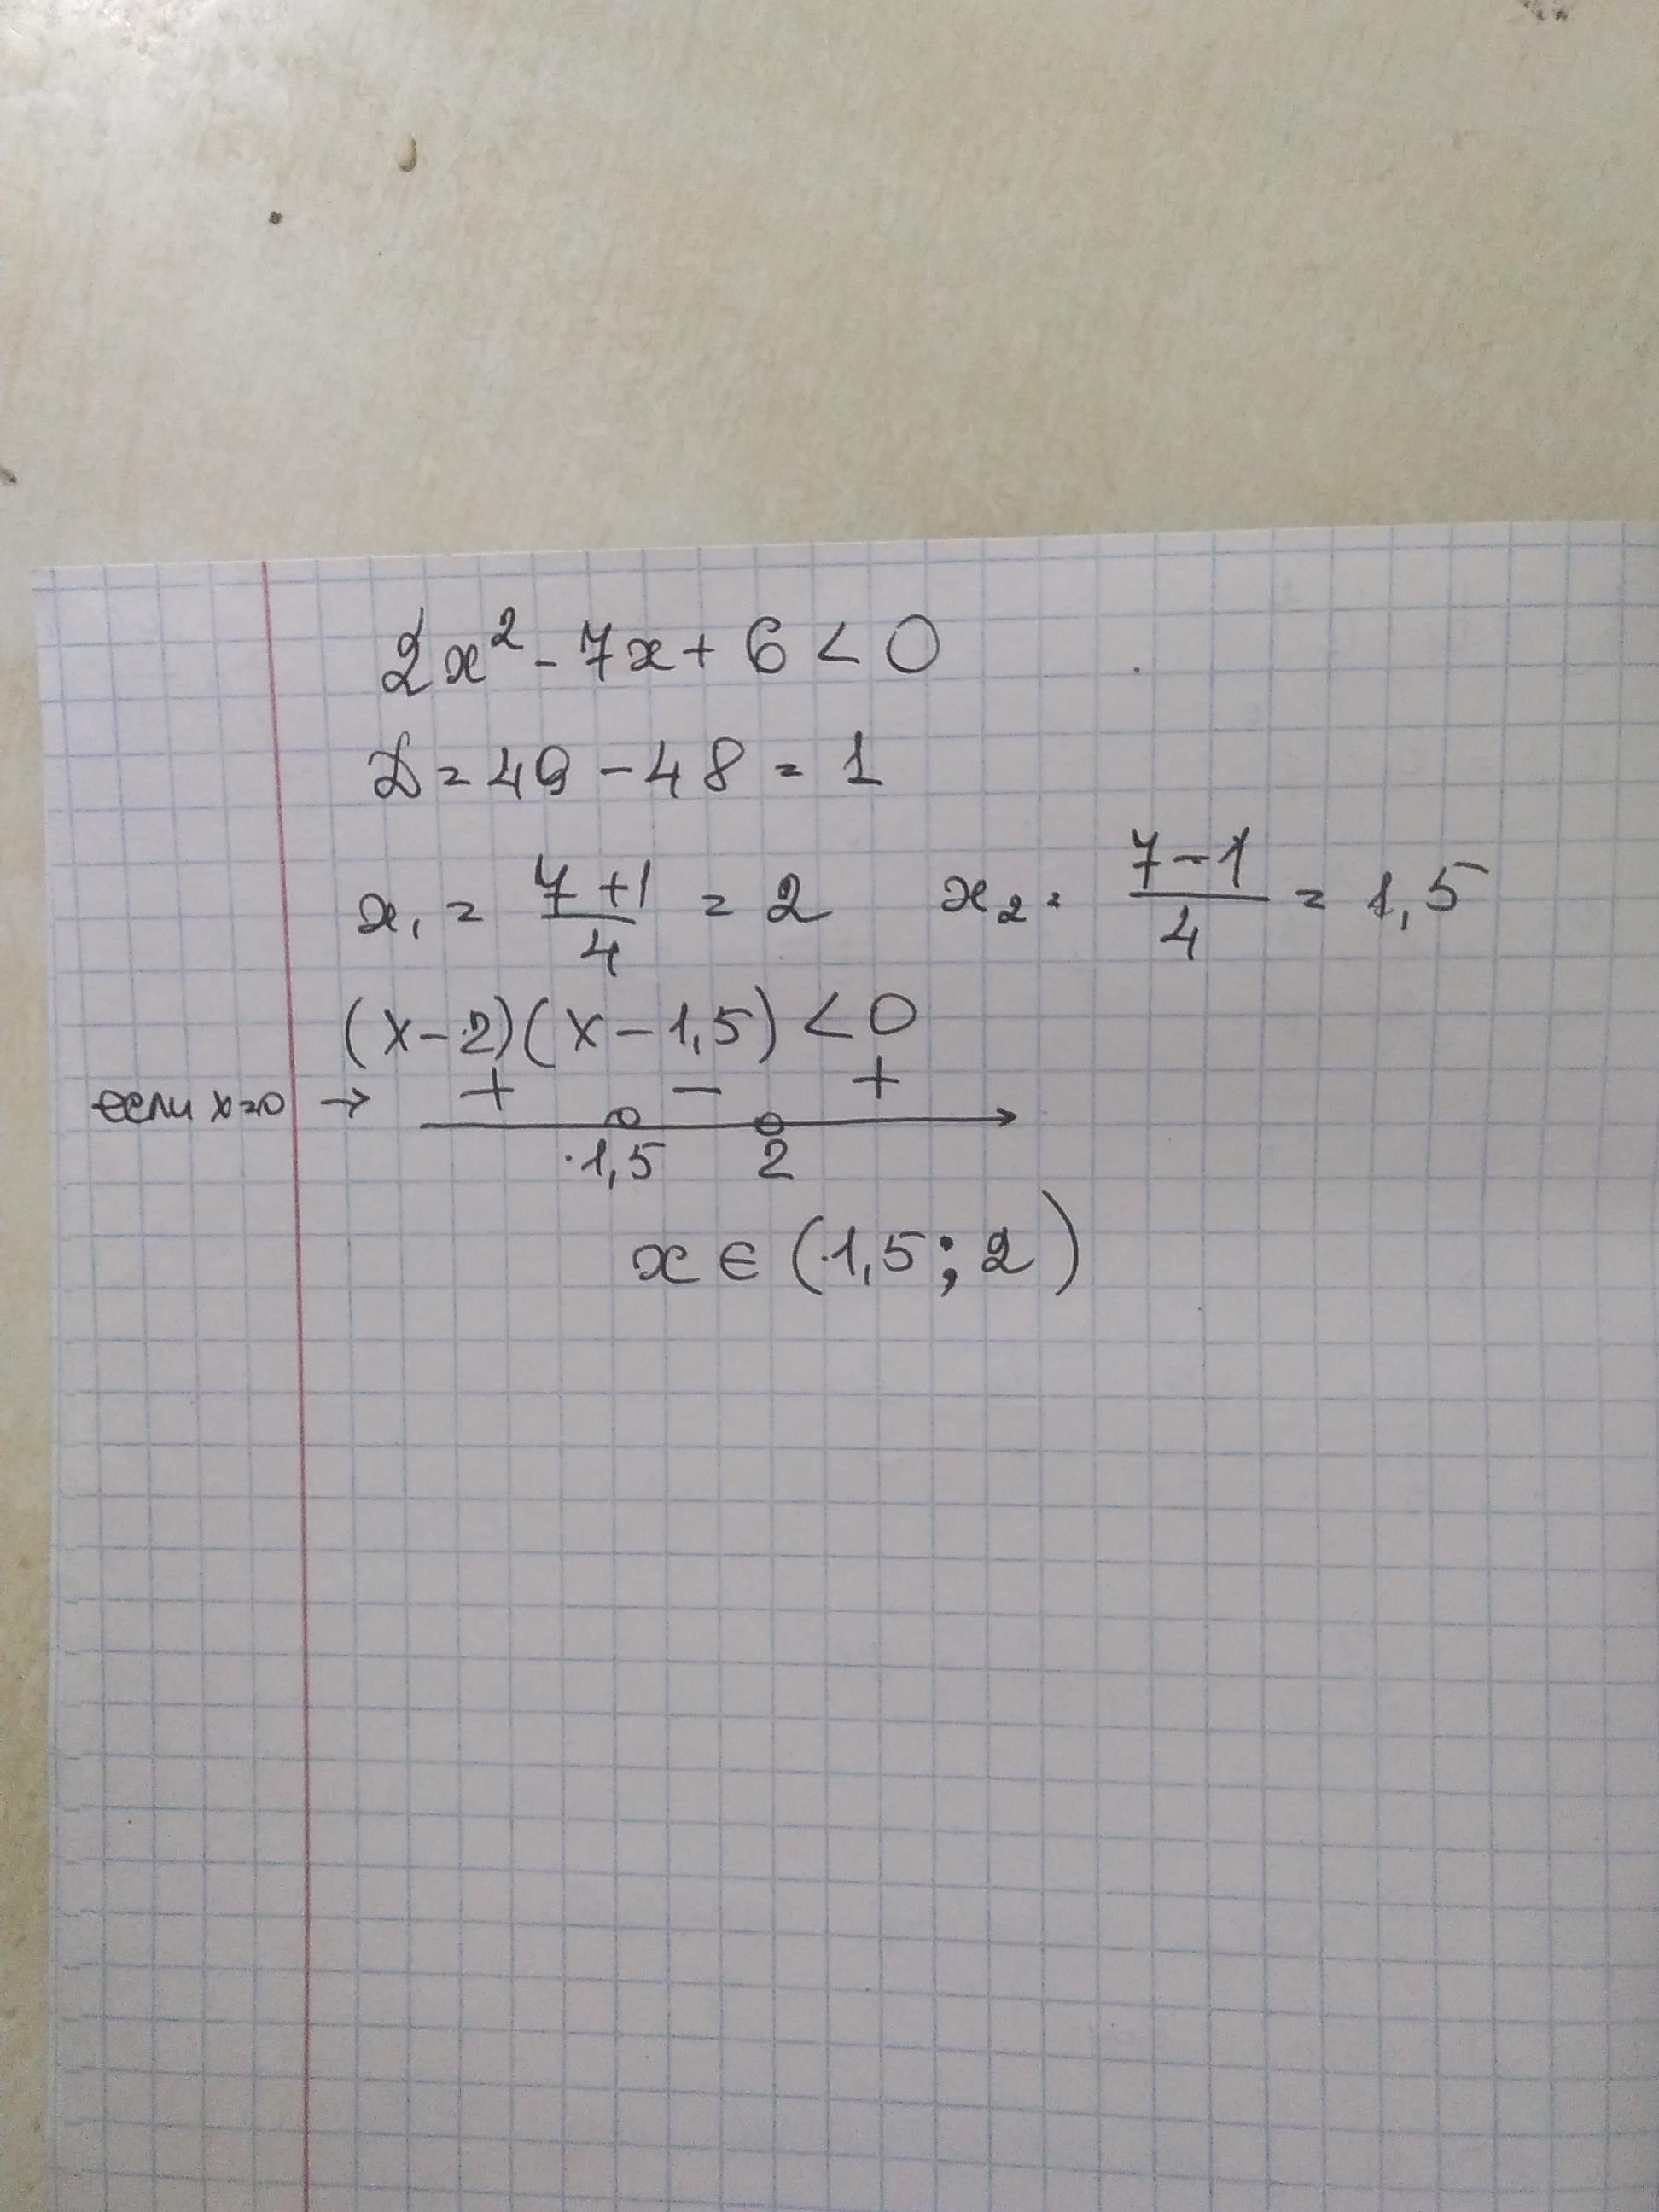 2x² - 7x + 6 < 0
D = 49 - 48 = 1
x₁ = (7+1)/4 = 2   x₂ = (7-1)/4 = 1,5
(x-2)(x-1,5) < 0
если x=0 → + - +
1,5 2
x ∈ (1,5; 2)